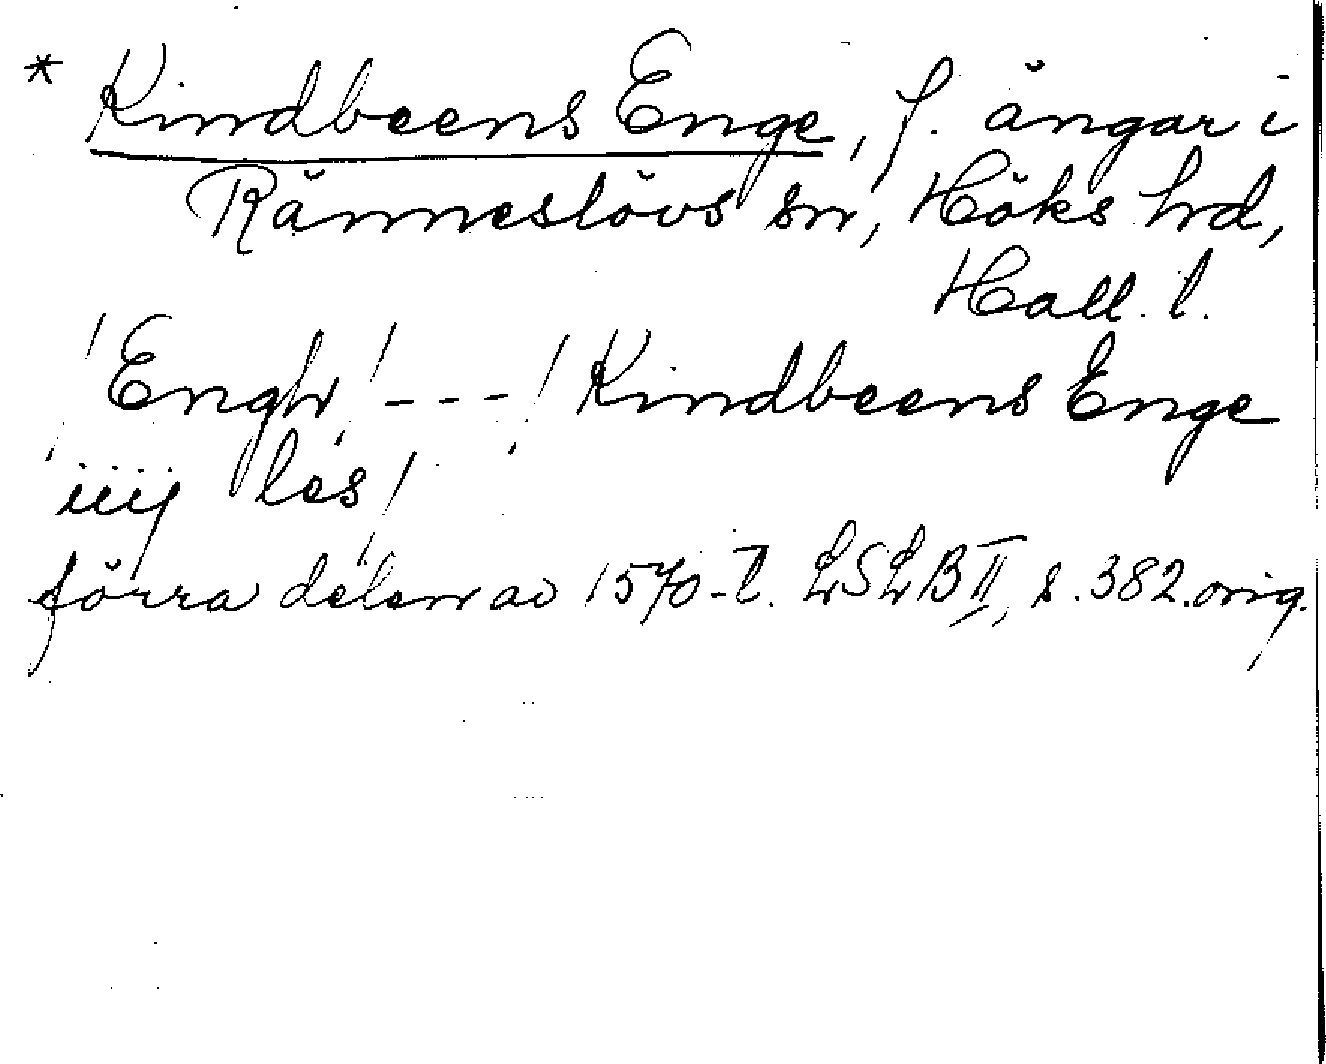 * Kindbeens Enge, f. ängar i
Ränneslövs sn, Höks hrd,
Hall. l.
/Engh/ --- / Kindbeens Enge
iiij les/
förra delen av 1570-t. LSLB II, s. 382. orig.